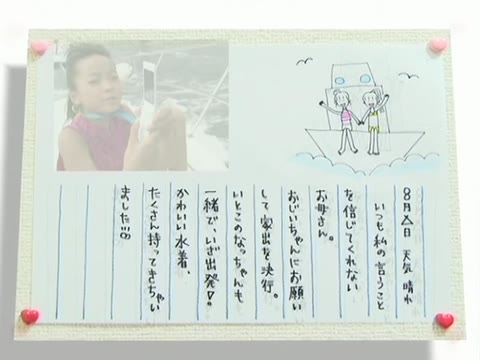 8月△日 天気 晴れ
いつも私の言うこと
を信じてくれない
お母さん。
おじいちゃんにお願い
して家出を決行。
いとこのなっちゃんも
一緒で、いざ出発!
かわいい水着、
たくさん持ってきちゃい
ました!!